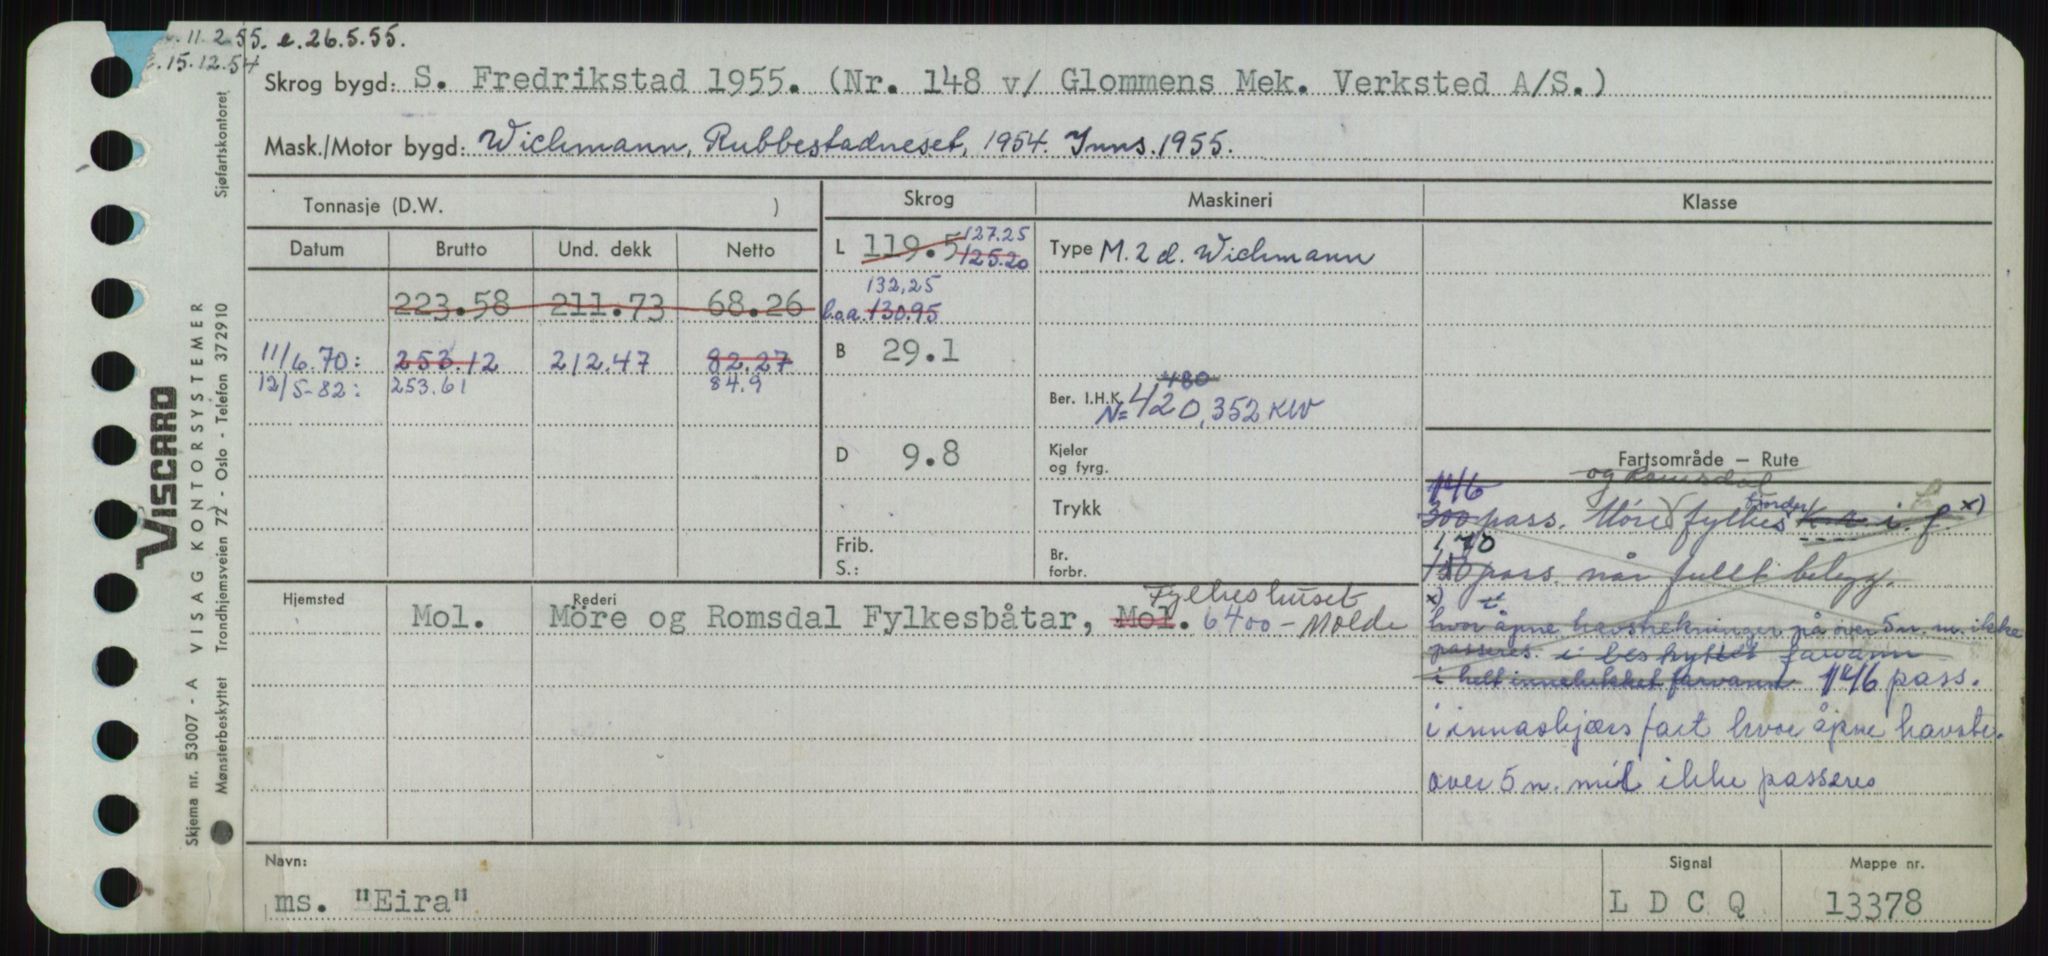 11.2.55. e.26.5.55.
15.12.54
Skrog bygd: S. Fredrikstad 1955. (Nr. 148 v/ Glommens Mek. Verksted A/S.)
Mask./Motor bygd: Wichmann, Rubbestadneset, 1954. Inns. 1955.
Tonnasje (D.W. ) Skrog Maskineri Klasse
Datum Brutto Und. dekk Netto
L 119.5 127.25
125.20
Type M. 2 d. Wichmann
223.58 211.73 68.26
132,25
l.o.a. 130.95
11/6.70: 253.12 212.47 82.27
12/5-82: 253.61 84.9
B 29.1
480
Ber. I.H.K. N= 420, 352 KW
D 9.8
Kjeler
og fyrg.
Trykk
Frib.
S.:
Br.
forbr.
Fartsområde – Rute
og Romsdal
146
300 pass. Möre fylkes fjorder i. f. x)
170
150 pass. når fullt belyg.
x) i
hvor åpne havstrekninger på over 5 n. m. ikke
passeres. i beskyttet farvann
i helt innelukket farvann 146 pass.
i innaskjærs fart hvor åpne havstr.
over 5 n. mil ikke passeres
Hjemsted Rederi
Mol. Möre og Romsdal Fylkesbåtar, Mol. Fylkeshuset
6400 – Molde
Navn: Signal Mappe nr.
ms. "Eira" L D C Q 13378
VISCARD
Skjema nr. 53007 - A VISAG KONTORSYSTEMER
Mønsterbeskyttet Trondhjemsveien 72 - Oslo - Telefon 372910 Sjøfartskontoret